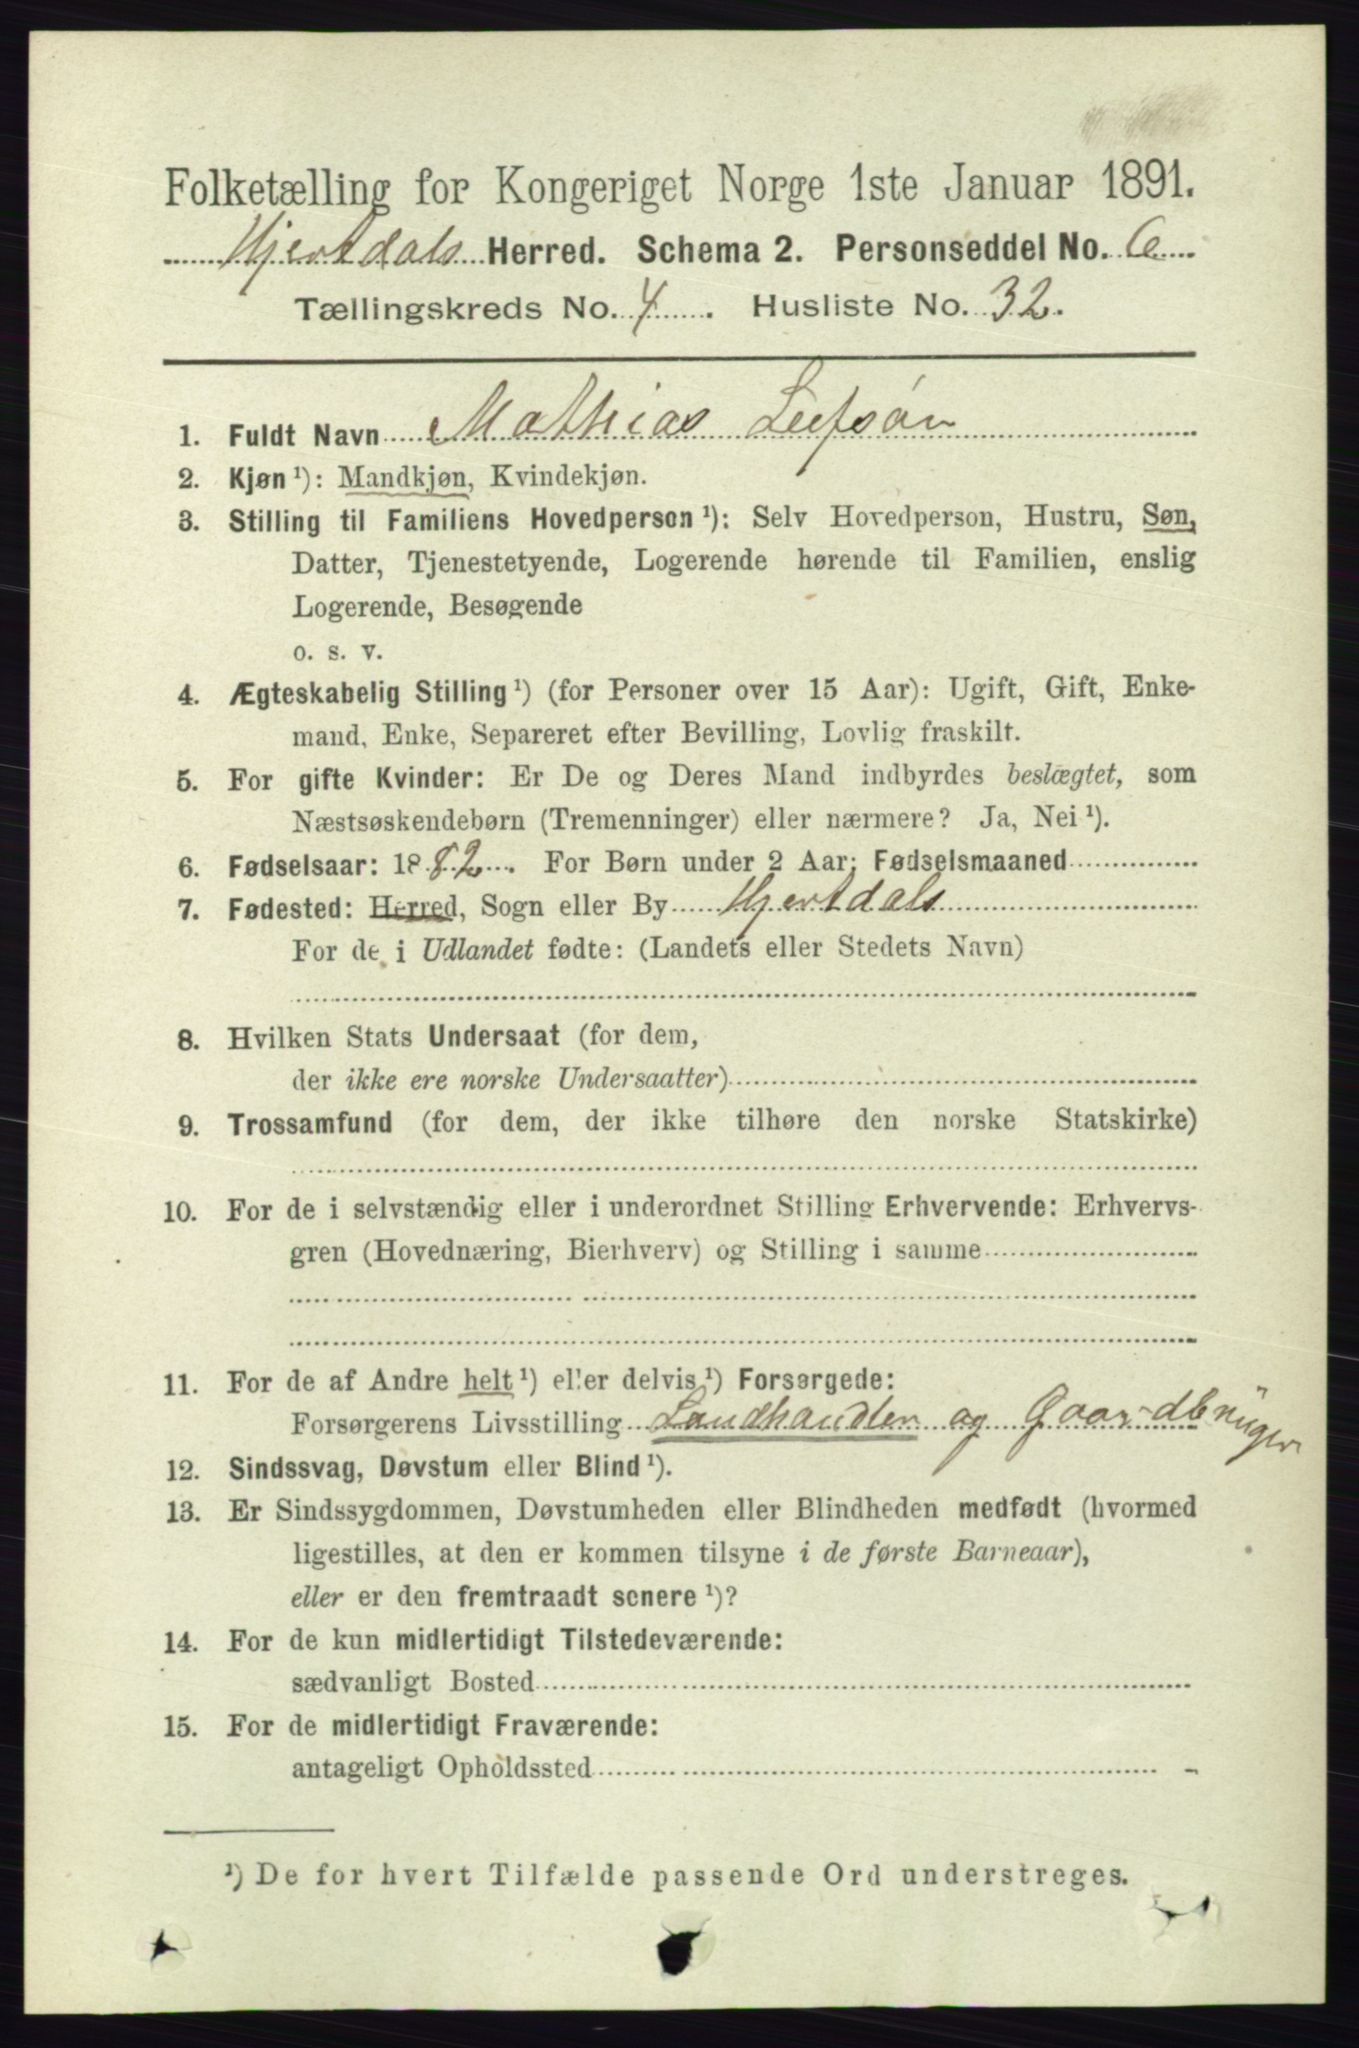 Folketælling for Kongeriget Norge 1ste Januar 1891.
Hjertdals Herred. Schema 2. Personseddel No. 6
Tællingskreds No. 4. Husliste No. 32.
1. Fuldt Navn Mathias Leifsøn
2. Kjøn ¹): Mandkjøn, Kvindekjøn.
3. Stilling til Familiens Hovedperson ¹): Selv Hovedperson, Hustru, Søn,
Datter, Tjenestetyende, Logerende hørende til Familien, enslig
Logerende, Besøgende
o. s. v.
4. Ægteskabelig Stilling ¹) (for Personer over 15 Aar): Ugift, Gift, Enke-
mand, Enke, Separeret efter Bevilling, Lovlig fraskilt.
5. For gifte Kvinder: Er De og Deres Mand indbyrdes beslægtet, som
Næstsøskendebørn (Tremenninger) eller nærmere? Ja, Nei ¹).
6. Fødselsaar: 1882. For Børn under 2 Aar: Fødselsmaaned
7. Fødested: Herred, Sogn eller By Hjertdals
For de i Udlandet fødte: (Landets eller Stedets Navn)
8. Hvilken Stats Undersaat (for dem,
der ikke ere norske Undersaatter)
9. Trossamfund (for dem, der ikke tilhøre den norske Statskirke)
10. For de i selvstændig eller i underordnet Stilling Erhvervende: Erhvervs-
gren (Hovednæring, Bierhverv) og Stilling i samme
11. For de af Andre helt ¹) eller delvis ¹) Forsørgede:
Forsørgerens Livsstilling Landhandler og Gaardbrüger
12. Sindssvag, Døvstum eller Blind ¹).
13. Er Sindssygdommen, Døvstumheden eller Blindheden medfødt (hvormed
ligestilles, at den er kommen tilsyne i de første Barneaar),
eller er den fremtraadt senere ¹)?
14. For de kun midlertidigt Tilstedeværende:
sædvanligt Bosted
15. For de midlertidigt Fraværende:
antageligt Opholdssted
¹) De for hvert Tilfælde passende Ord understreges.